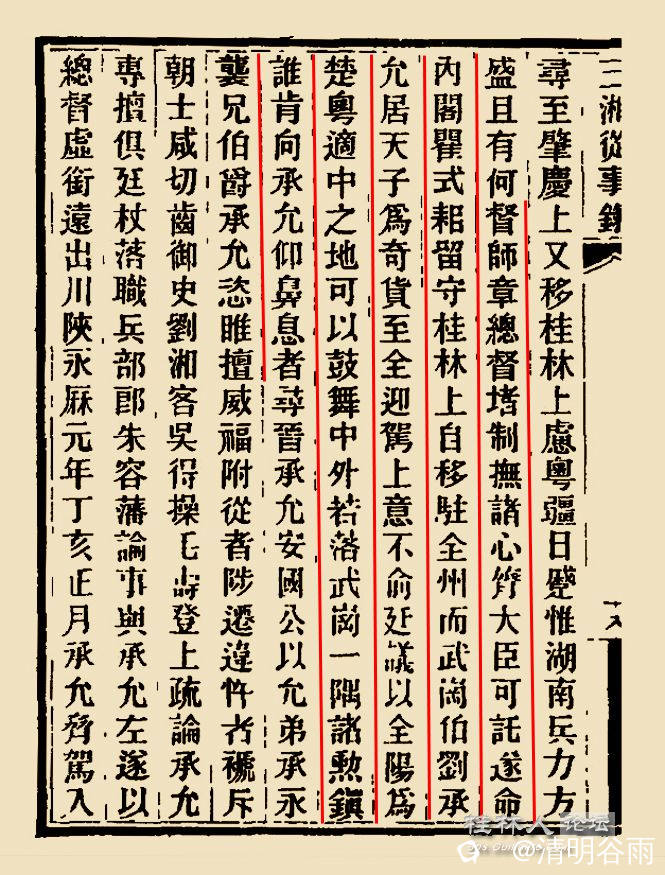 三湘從事錄
尋至肇慶上又移桂林上慮粵疆日蹙惟湖南兵力方
盛且有何督師章總督堵制撫諸心膂大臣可託遂命
內閣瞿式耜留守桂林上自移駐全州而武崗伯劉承
允居天子為奇貨至全迎駕上意不俞廷議以全陽為
楚粵適中之地可以鼓舞中外若落武崗一隅諸勲鎮
誰肯向承允仰鼻息者尋晉承允安國公以允弟承永
襲兄伯爵承允恣睢擅威福附從者陟遷違忤者褫斥
朝士咸切齒御史劉湘客吳得操毛壽登上疏論承允
專擅俱廷杖落職兵部郎朱容藩論事與承允左遂以
總督虛銜遠出川陝永厤元年丁亥正月承允脅駕入
桂林人论坛
BBS.GUILINLIFE.COM
@清明谷雨